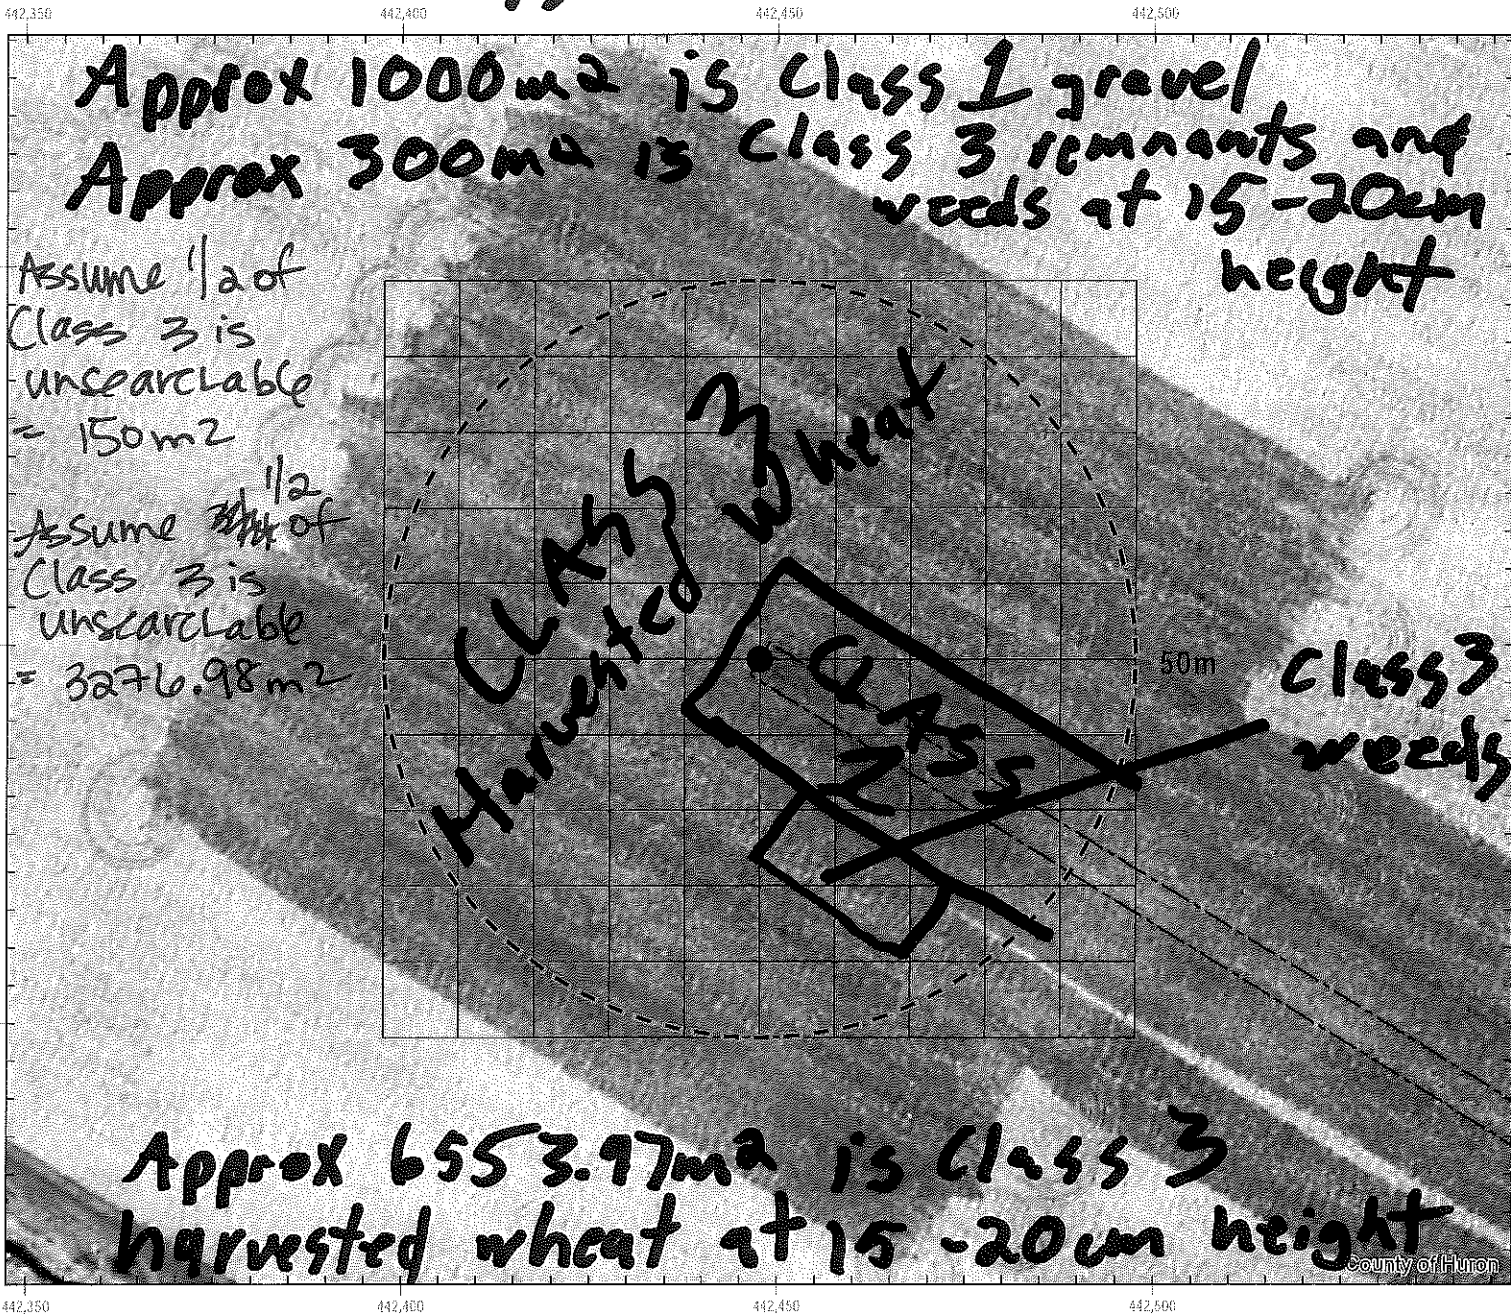 442,350 442,400 442,450 442,500
Approx 1000m2 is Class 1 gravel
Approx 300m2 is Class 3 remnants and
weeds at 15-20cm
height
Assume 1/2 of
Class 3 is
unsearchable
= 150m2
1/2
Assume of
Class 3 is
unsearchable
= 3276.98m2
CLASS 3
Harvested Wheat
CLASS
1
50m
Class 3
weeds
Approx 6553.97m2 is Class 3
harvested wheat at 15-20cm height
County of Huron
442,350 442,400 442,450 442,500